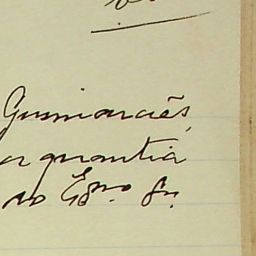 Guimarães,
a quantia
ao Exmo. Sr.